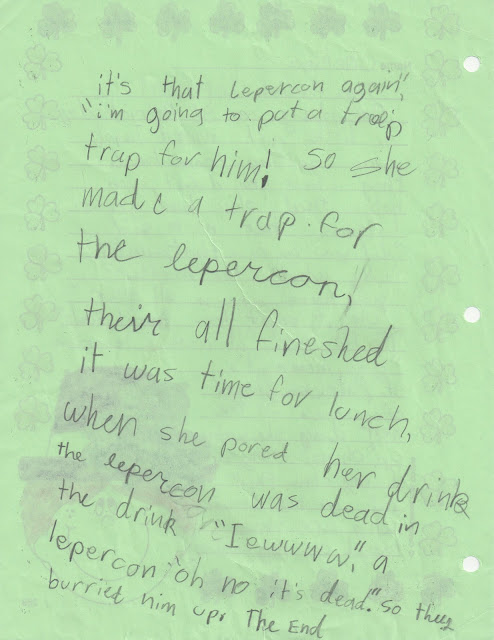 it's that lepercon again",
"i'm going to put a troep
trap for him! So she
made a trap for
the lepercon,
their all fineshed
it was time for lunch,
when she pored her drink
the lepercon was dead in
the drink "Iewwww." a
lepercon "oh no it's dead." so they
burried him up. The End